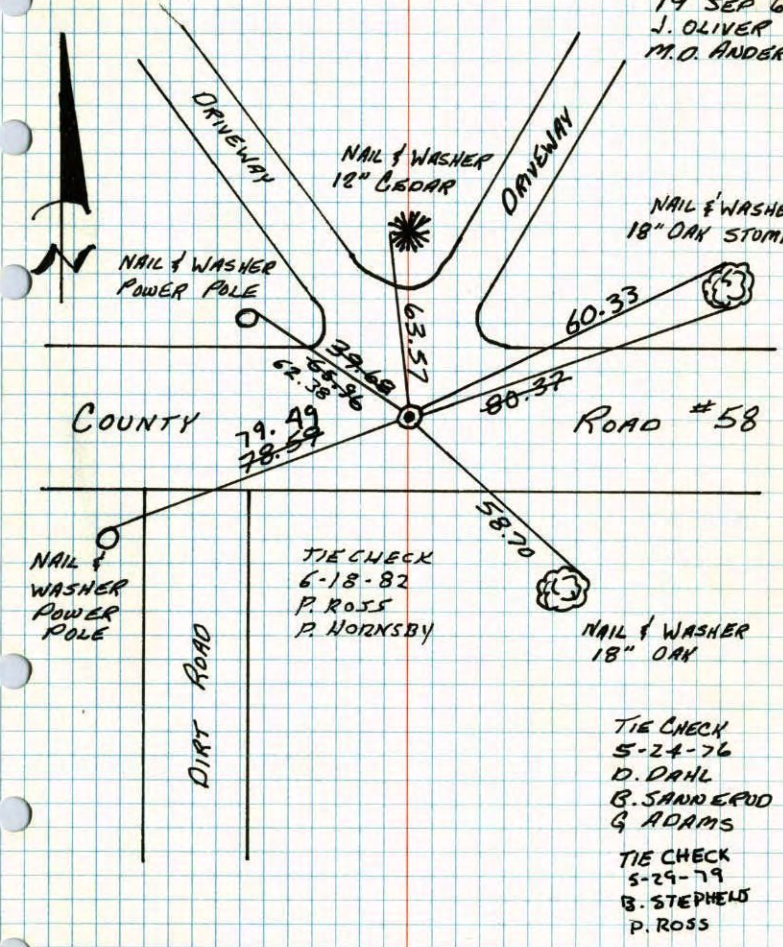 19 SEP 6
J. OLIVER
M.O. ANDER
DRIVEWAY
DRIVEWAY
NAIL & WASHER
12" CEDAR
NAIL & WASHE
18" OAK STUM
N
NAIL & WASHER
POWER POLE
60.33
63.57
39.68
65.96
62.38
80.37
COUNTY
ROAD #58
79.49
78.59
58.70
NAIL &
WASHER
POWER
POLE
TIE CHECK
6-18-82
P. ROSS
P. HORNSBY
NAIL & WASHER
18" OAK
DIRT ROAD
TIE CHECK
5-24-76
D. DAHL
B. SANNERUD
G ADAMS
TIE CHECK
5-29-79
B. STEPHENS
P. ROSS